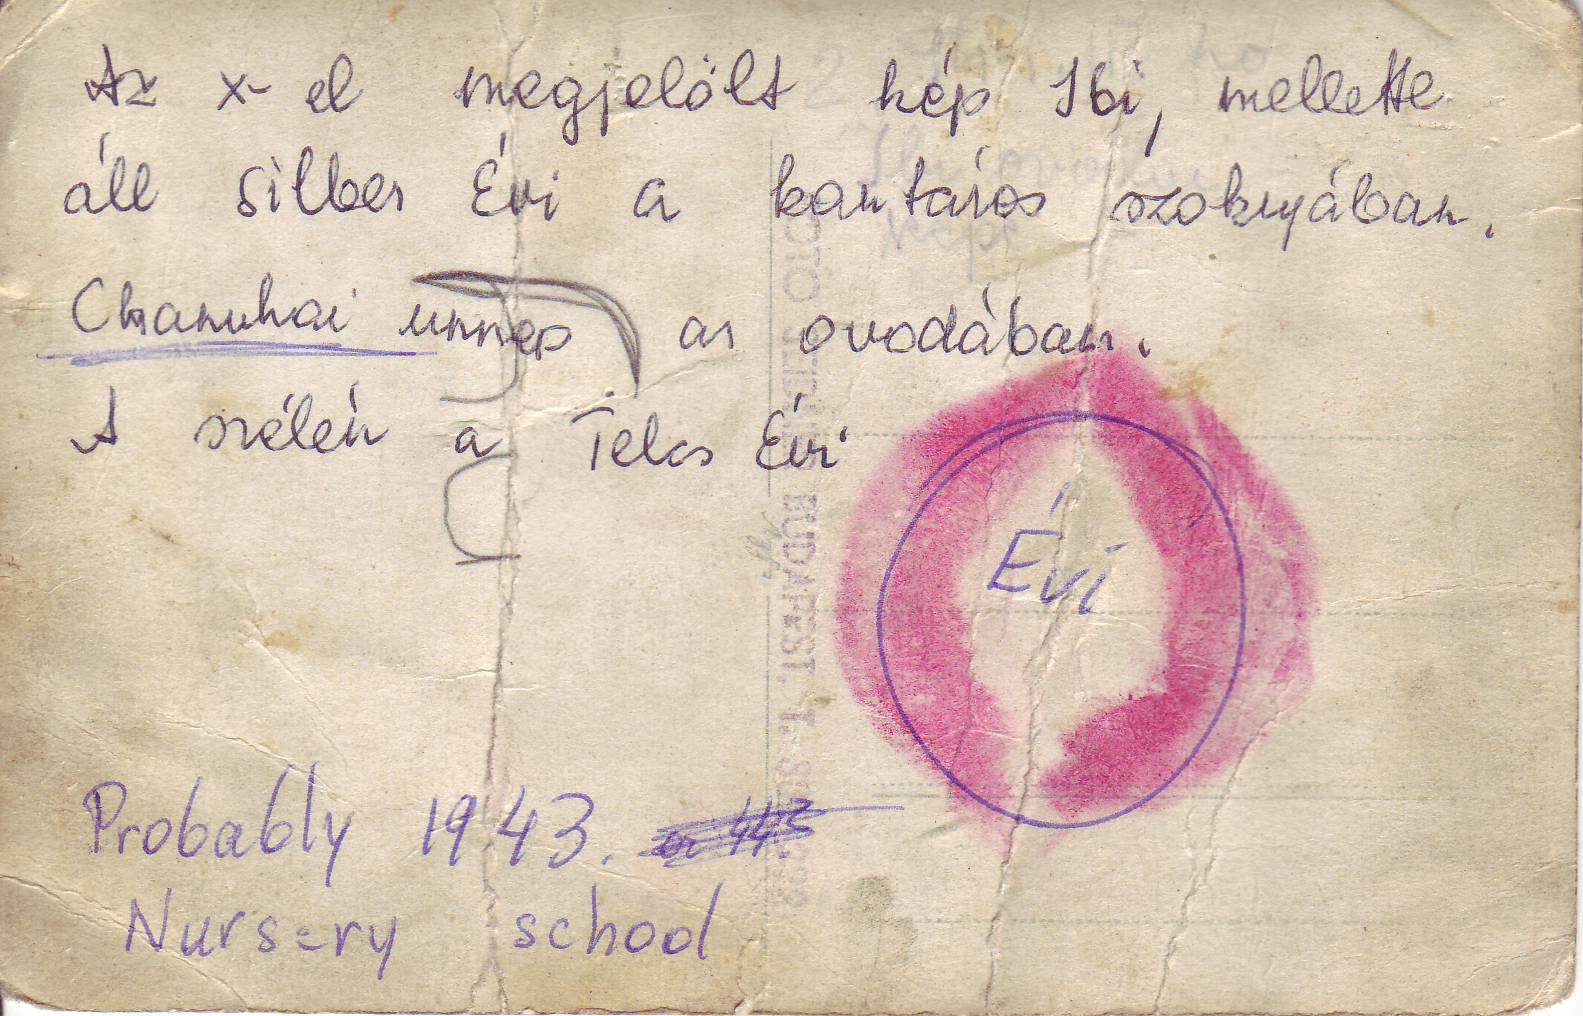 Az x-el megjelölt kép Ibi, mellette
áll Silber Évi a kantáros szoknyában.
Chanuhai ünnep az ovodában.
A szélén a Telcs Évi
Évi
BUDAPEST, I.
Probably 1943.
Nursery school